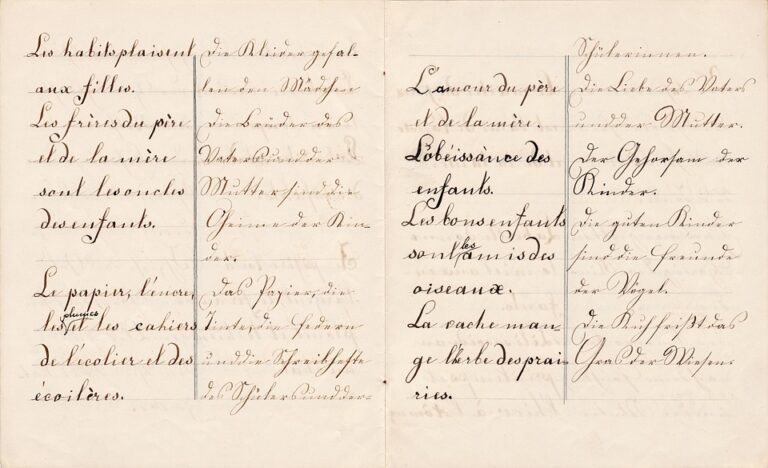 Les habits plaisent
aux filles.
Les frères du père
et de la mère
sont les oncles
des enfants.
Le papier, l'encre,
les plumes et les cahiers
de l'écolier et des
écoilères.
Die Kleider gefal-
len den Mädchen
Die Brüder des
Vaters und der
Mutter sind die
Oheime der Kin-
der.
Das Papier, die
Tinte, die Federn
und die Schreibhefte
des Schülers und der
L'amour du père
et de la mère.
L'obéissance des
enfants.
Les bons enfants
sont les amis des
oiseaux.
La vache man-
ge l'erbe des prai-
ries.
Schülerinnen.
Die Liebe des Vaters
und der Mutter.
Der Gehorsam der
Kinder.
Die guten Kinder
sind die Freunde
der Vögel.
Die Kuh frißt das
Gras der Wiesen.